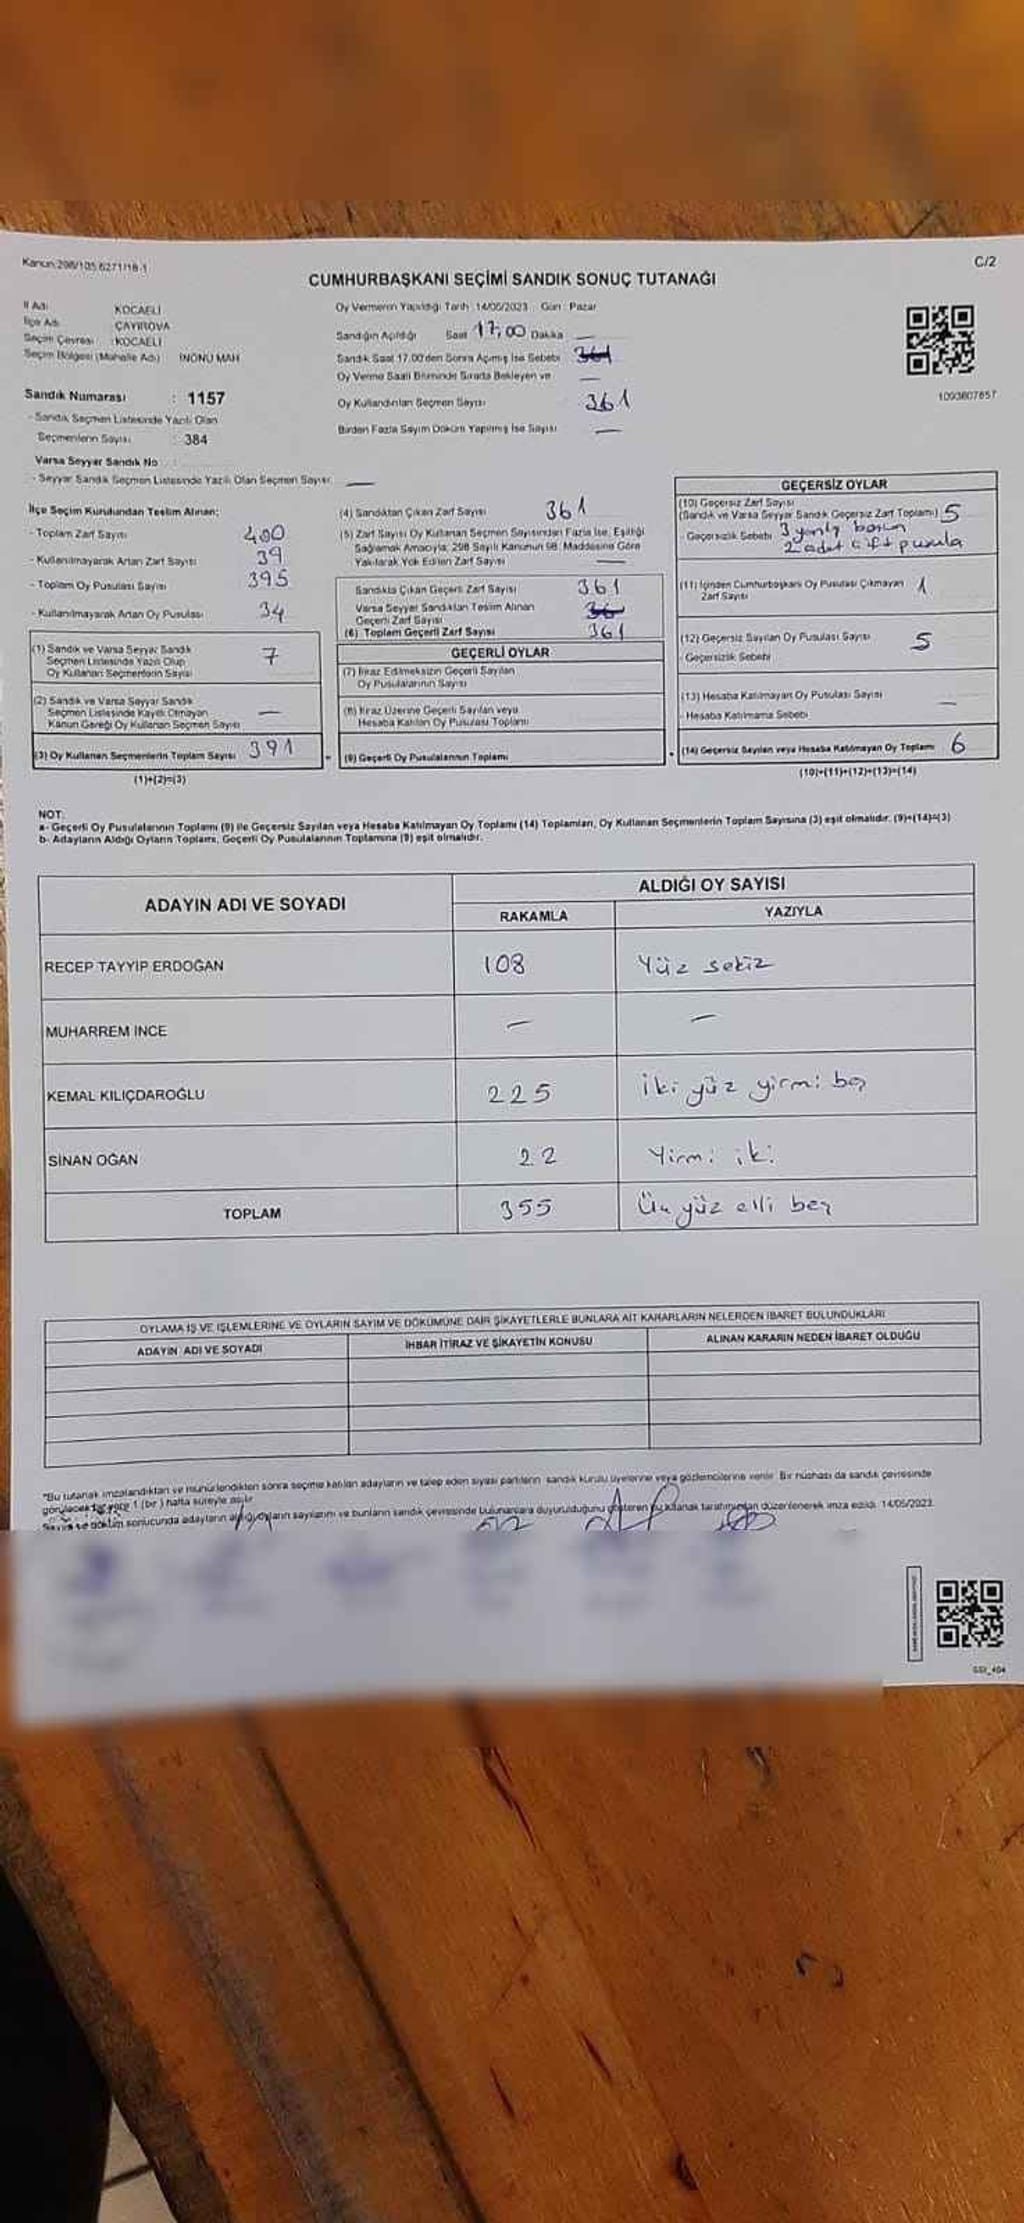 Kanun:298/105.6271/18-1
C/2
CUMHURBAŞKANI SEÇİMİ SANDIK SONUÇ TUTANAĞI
İl Adı KOCAELİ
İlçe Adı ÇAYIROVA
Seçim Çevresi :KOCAELİ
Seçim Bölgesi (Mahalle Adı) İNÖNÜ MAH
Sandık Numarası : 1157
- Sandık Seçmen Listesinde Yazılı Olan
Seçmenlerin Sayısı : 384
Varsa Seyyar Sandık No :
- Seyyar Sandık Seçmen Listesinde Yazılı Olan Seçmen Sayısı —
Oy Vermenin Yapıldığı Tarih : 14/05/2023 Gün : Pazar
Sandığın Açıldığı Saat 17,00 Dakika —
Sandık Saat 17.00'den Sonra Açılmış İse Sebebi 361
Oy Verme Saati Bitiminde Sırada Bekleyen ve —
Oy Kullandırılan Seçmen Sayısı 361
Birden Fazla Sayım Döküm Yapılmış İse Sayısı —
1093607857
İlçe Seçim Kurulundan Teslim Alınan;
- Toplam Zarf Sayısı 400
- Kullanılmayarak Artan Zarf Sayısı 39
- Toplam Oy Pusulası Sayısı 395
- Kullanılmayarak Artan Oy Pusulası 34
(1) Sandık ve Varsa Seyyar Sandık
Seçmen Listesinde Yazılı Olup
Oy Kullanan Seçmenlerin Sayısı 7
(2) Sandık ve Varsa Seyyar Sandık
Seçmen Listesinde Kayıtlı Olmayan
Kanun Gereği Oy Kullanan Seçmen Sayısı —
(3) Oy Kullanan Seçmenlerin Toplam Sayısı 391
(1)+(2)=(3)
(4) Sandıktan Çıkan Zarf Sayısı 361
(5) Zarf Sayısı Oy Kullanan Seçmen Sayısından Fazla İse, Eşitliği
Sağlamak Amacıyla, 298 Sayılı Kanunun 98. Maddesine Göre
Yakılarak Yok Edilen Zarf Sayısı —
Sandıkta Çıkan Geçerli Zarf Sayısı 361
Varsa Seyyar Sandıktan Teslim Alınan
Geçerli Zarf Sayısı 36
(6) Toplam Geçerli Zarf Sayısı 361
GEÇERLİ OYLAR
(7) İtiraz Edilmeksizin Geçerli Sayılan
Oy Pusulalarının Sayısı
(8) İtiraz Üzerine Geçerli Sayılan veya
Hesaba Katılan Oy Pusulası Toplamı
(9) Geçerli Oy Pusulalarının Toplamı
GEÇERSİZ OYLAR
(10) Geçersiz Zarf Sayısı
(Sandık ve Varsa Seyyar Sandık Geçersiz Zarf Toplamı) 5
- Geçersizlik Sebebi 3 yanlış basım
2 adet çift pusula
(11) İçinden Cumhurbaşkanı Oy Pusulası Çıkmayan
Zarf Sayısı 1
(12) Geçersiz Sayılan Oy Pusulası Sayısı 5
- Geçersizlik Sebebi
(13) Hesaba Katılmayan Oy Pusulası Sayısı —
- Hesaba Katılmama Sebebi
(14) Geçersiz Sayılan veya Hesaba Katılmayan Oy Toplamı 6
(10)+(11)+(12)+(13)=(14)
NOT:
a- Geçerli Oy Pusulalarının Toplamı (9) ile Geçersiz Sayılan veya Hesaba Katılmayan Oy Toplamı (14) Toplamları, Oy Kullanan Seçmenlerin Toplam Sayısına (3) eşit olmalıdır. (9)+(14)=(3)
b- Adayların Aldığı Oyların Toplamı, Geçerli Oy Pusulalarının Toplamına (9) eşit olmalıdır.
ADAYIN ADI VE SOYADI
ALDIĞI OY SAYISI
RAKAMLA YAZIYLA
RECEP TAYYİP ERDOĞAN 108 Yüz sekiz
MUHARREM İNCE — —
KEMAL KILIÇDAROĞLU 225 iki yüz yirmi beş
SİNAN OĞAN 22 Yirmi iki
TOPLAM 355 Üç yüz elli beş
OYLAMA İŞ VE İŞLEMLERİNE VE OYLARIN SAYIM VE DÖKÜMÜNE DAİR ŞİKAYETLERLE BUNLARA AİT KARARLARIN NELERDEN İBARET BULUNDUKLARI
ADAYIN ADI VE SOYADI İHBAR İTİRAZ VE ŞİKAYETİN KONUSU ALINAN KARARIN NEDEN İBARET OLDUĞU
"Bu tutanak imzalandıktan ve mühürlendikten sonra seçime katılan adayların ve talep eden siyasi partilerin sandık kurulu üyelerine veya gözlemcilerine verilir. Bir nüshası da sandık çevresinde
görülecek bir yere 1 (bir) hafta süreyle asılır.
Sayım ve döküm sonucunda adayların aldığı oyların sayılarını ve bunların sandık çevresinde bulunanlara duyurulduğunu gösteren bu tutanak tarafımızdan düzenlenerek imza edildi. 14/05/2023